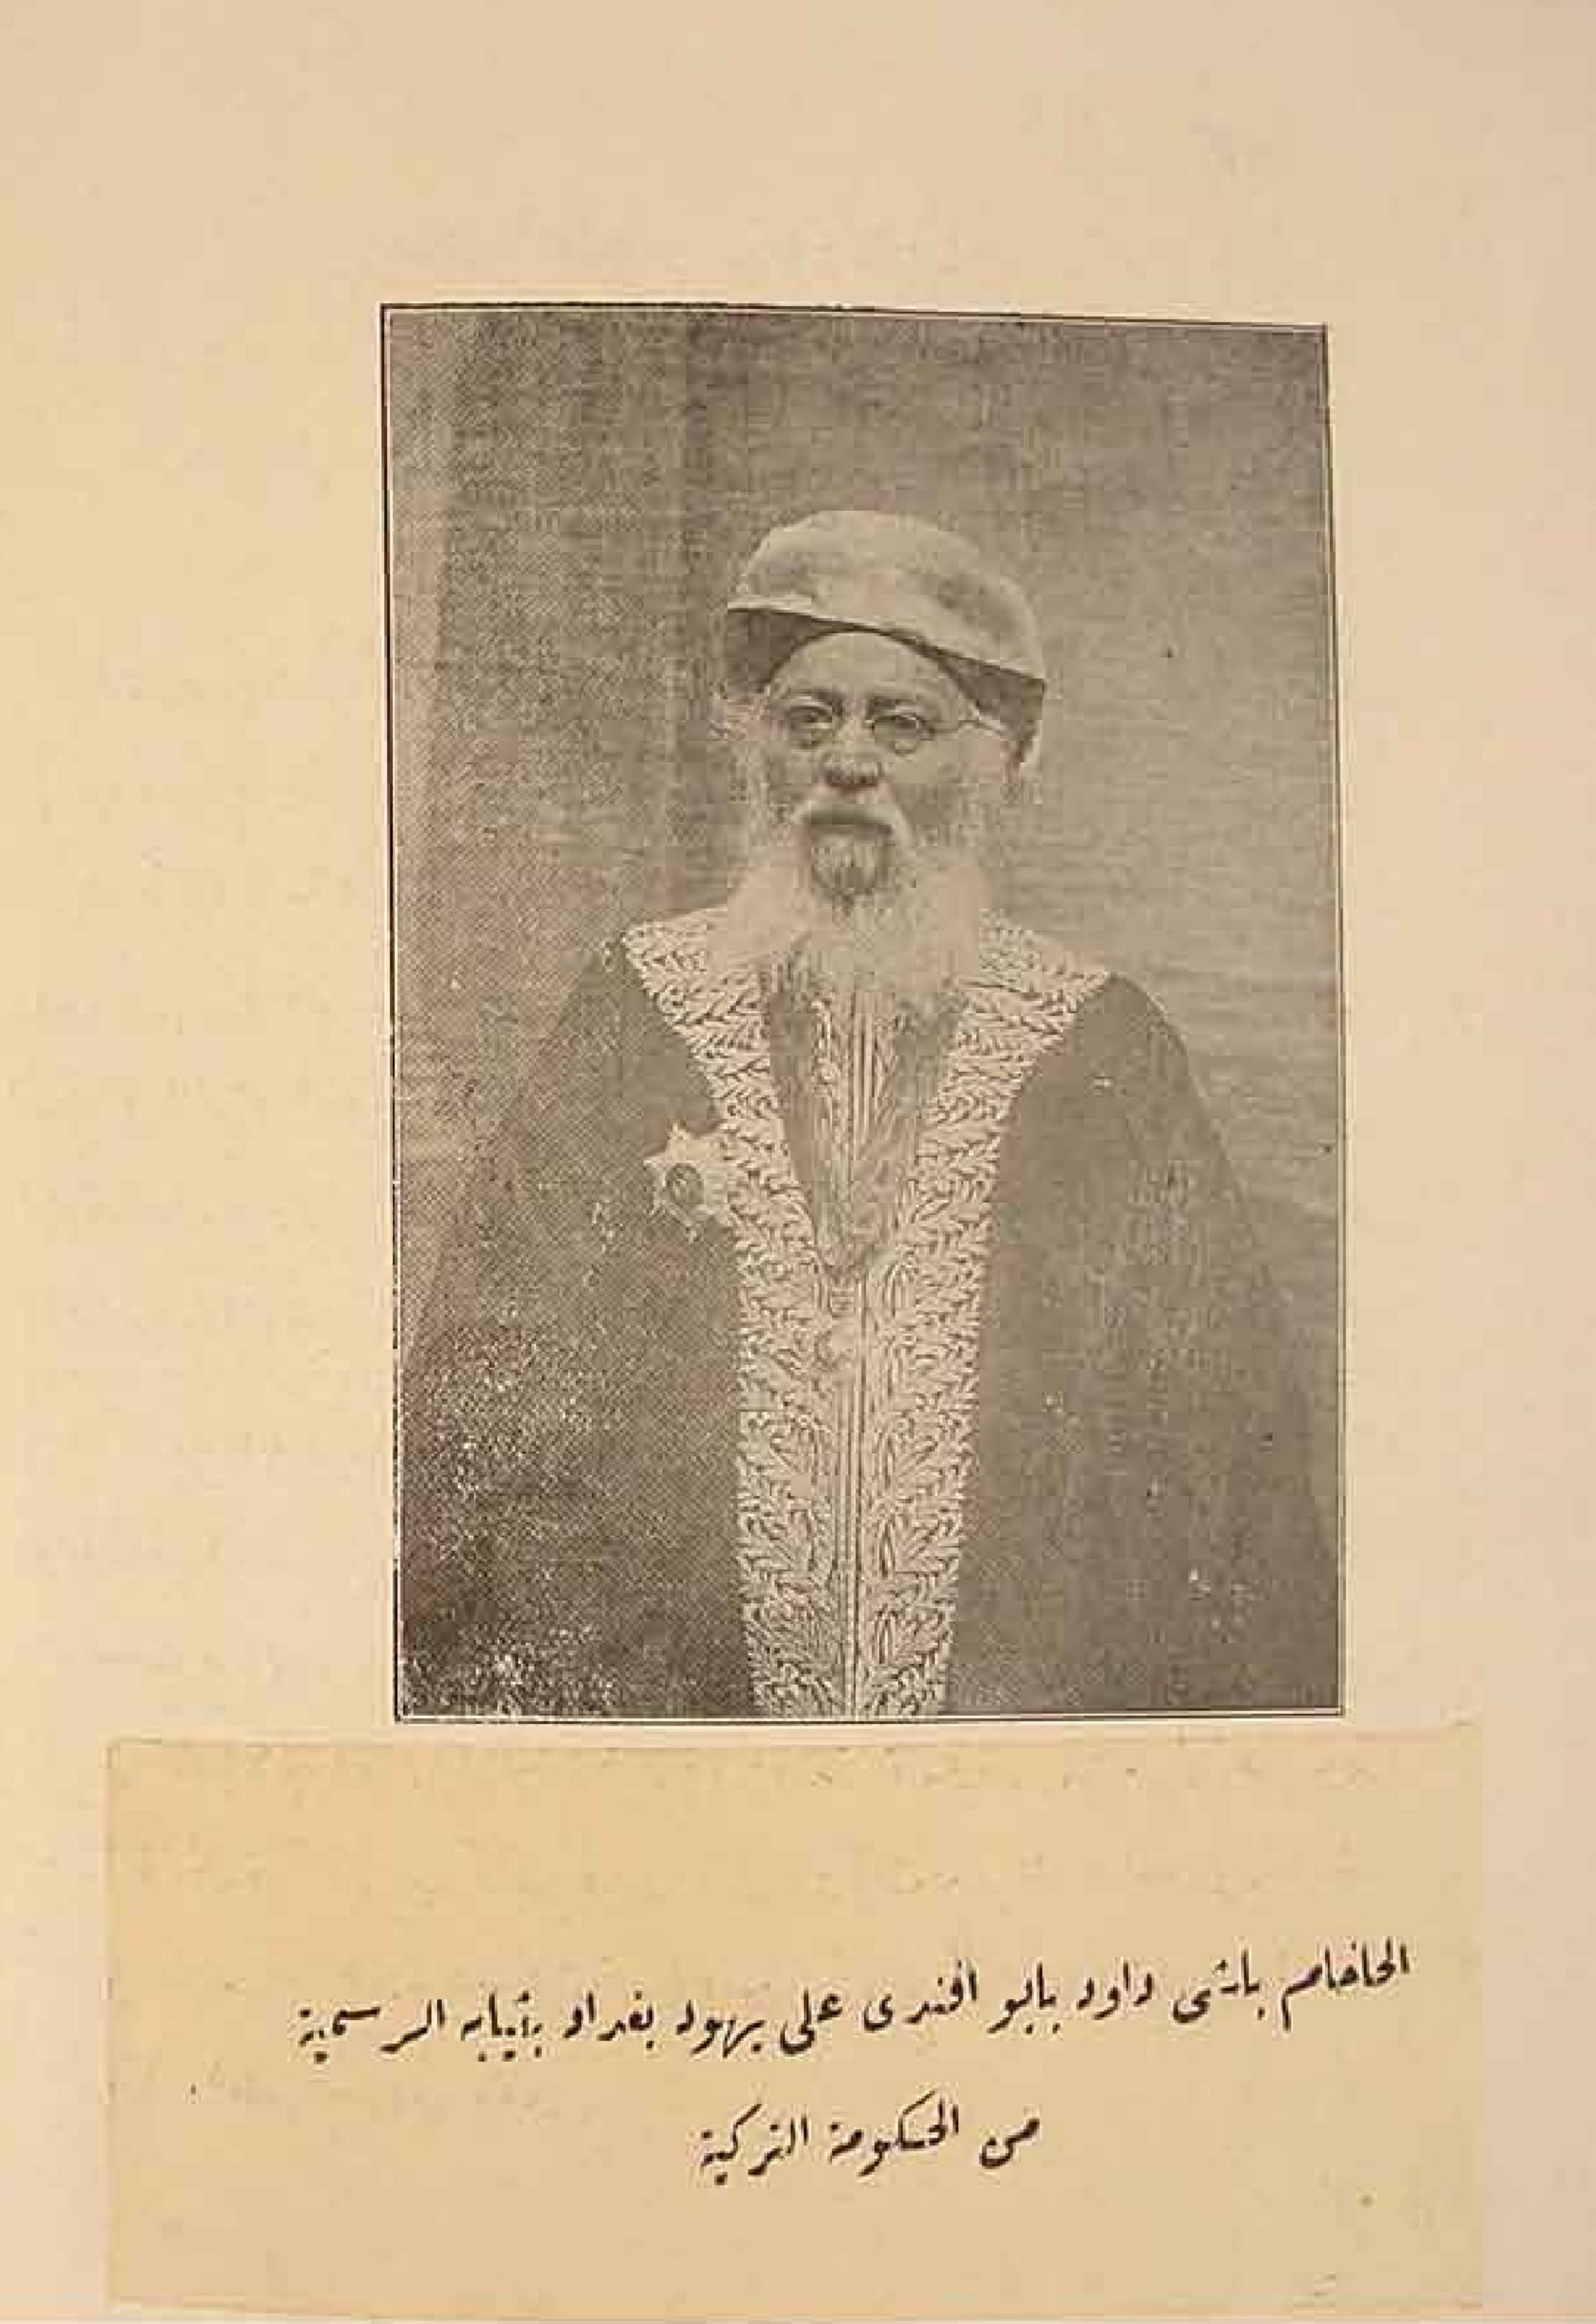 الحاخام باشى داود بابو افندى على يهود بغداد بثيابه الرسمية
من الحكومة التركية